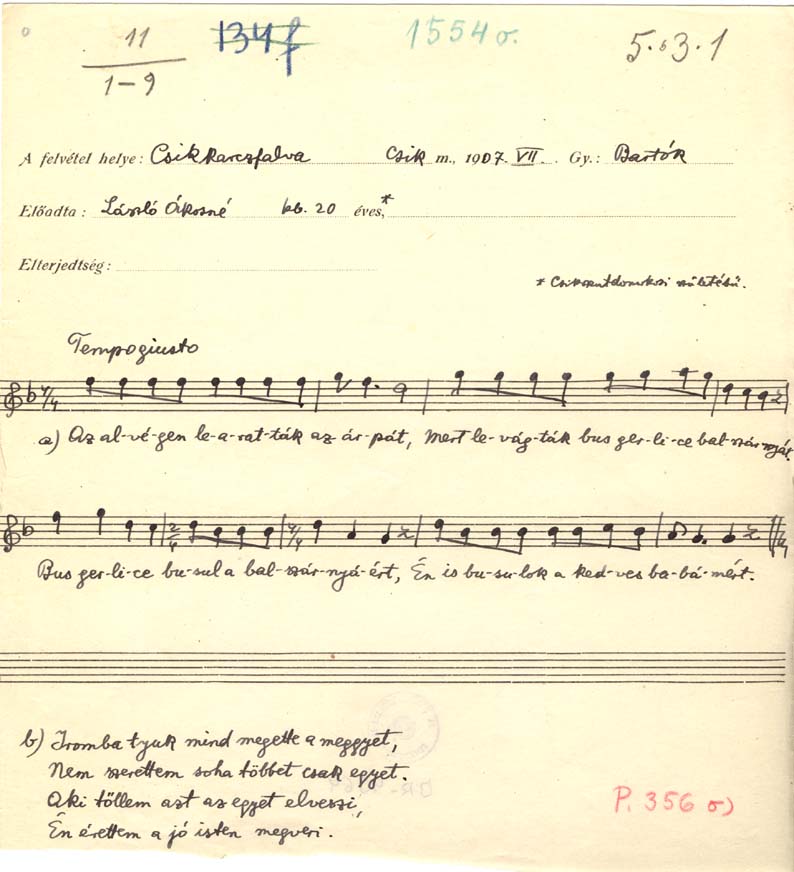 11
1-9
134f
1554 o.
5.3.1
A felvétel helye: Csikkarczfalva Csik m., 1907. VII. Gy.: Bartók
Előadta: László Ákosné kb. 20 éves,*
Elterjedtség:
* Csikszentdomokosi születésű.
Tempo giusto
a) Az al-vé-gen le-a-rat-ták az ár-pát, Mert le-vág-ták bus ger-li-ce bal-szár-nyát.
2/4
Bus ger-li-ce bu-sul a bal-szár-nyá-ért, Én is bu-su-lok a ked-ves ba-bá-mért.
b) Iromba tyuk mind megette a meggyet,
Nem szerettem soha többet csak egyet.
Aki töllem azt az egyet elveszi,
Én érettem a jó isten megveri.
P. 356 o)